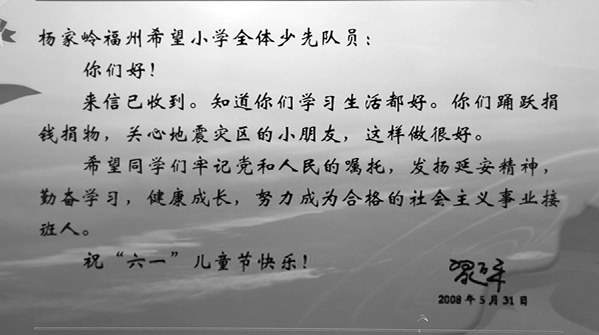 杨家岭福州希望小学全体少先队员：
你们好！
来信已收到。知道你们学习生活都好。你们踊跃捐
钱捐物，关心地震灾区的小朋友，这样做很好。
希望同学们牢记党和人民的嘱托，发扬延安精神，
勤奋学习，健康成长，努力成为合格的社会主义事业接
班人。
祝“六一”儿童节快乐！
2008年5月31日